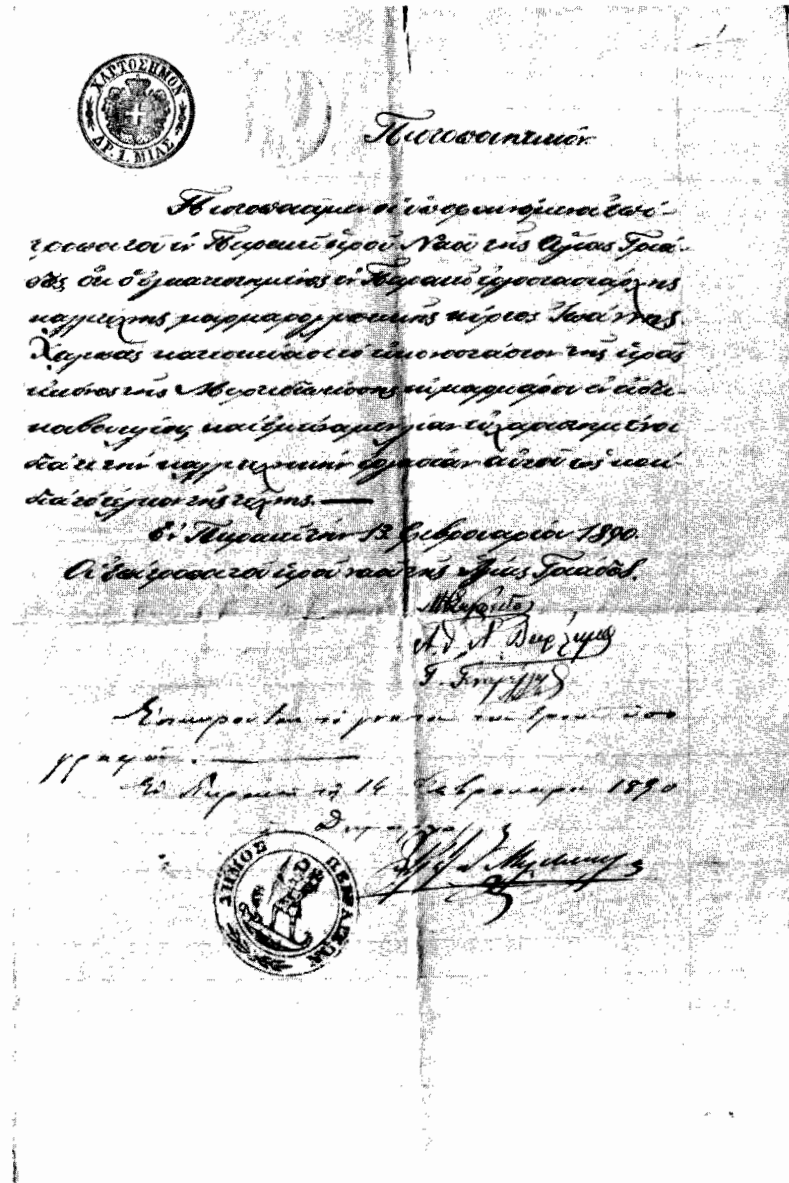 ΧΑΡΤΟΣΗΜΟΝ
ΔΡ. 1. ΜΙΑΣ
Πιστοποιητικόν
Πιστοποιούμεν οἱ ὑποφαινόμενοι ἐπί-
τροποι τοῦ ἐν Πειραιεῖ ἱεροῦ Ναοῦ τῆς Ἁγίας Τριά-
δος ὅτι ὁ ἐγκατεστημένος ἐν Πειραιεῖ ἐργοστασιάρχης
καλλιτέχνης μαρμαρογλυπτικῆς κύριος Ἰωάννης
Χαλεπᾶς κατεσκεύασε τὸ εἰκονοστάσιον τῆς ἱερᾶς
εἰκόνος τῆς Μυρτιδιωτίσσης
καὶ ἐμείναμεν λίαν εὐχαριστημένοι
διά τε τὴν καλλιτεχνικὴν ἐργασίαν αὐτοῦ ὡς καὶ
διὰ τὸ τῆς τέχνης.
Ἐν Πειραιεῖ τὴν 13 Φεβρουαρίου 1890.
Οἱ ἐπίτροποι τοῦ ἱεροῦ ναοῦ τῆς Ἁγίας Τριάδος.
Ἐπικυροῦται τὸ γνήσιον τῶν τριῶν ὑπο
γραφῶν.
Ἐν Πειραιεῖ τῇ 14 Φεβρουαρίου 1890
Ὁ Δήμαρχος
ΔΗΜΟΣ ΠΕΙΡΑΙΩΝ